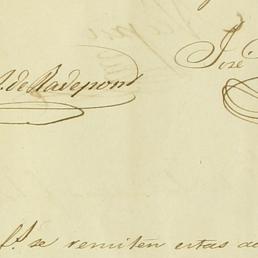 de Radepont José
se remiten estas